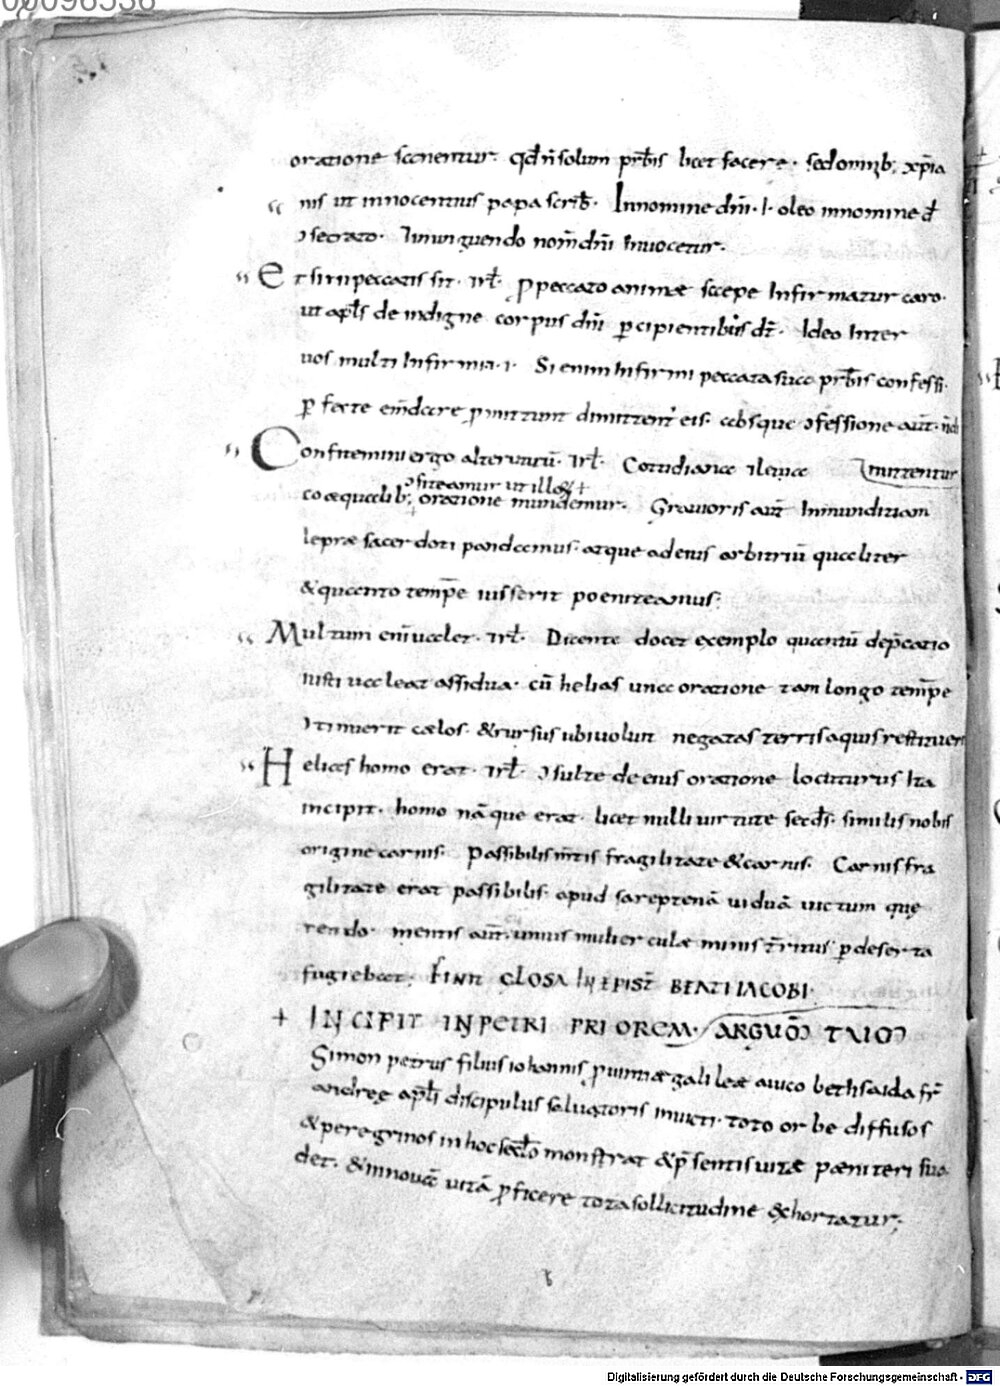 00096536
oratione sanentur. qd̄ ñ solum pr̄bis licet facere. sed omnib; xp̄ia
nis ut innocentius papa scrib̄. In nomine dn̄i. ł. oleo in nomine d̄
ɔsecrato. ł in unguendo nom̄ dn̄i Invocetur.
Et si in peccatis sit. rł. p̱ peccato animæ sæpe Infirmatur caro.
ut apl̄s de indigne corpus dn̄i p̱cipientibus dr̄. Ideo Inter
vos multi Infirmi a. r. Si enim Infirmi peccata sua pr̄bis confessi.
p̱fecte em̄dare p̱mittunt dimittent̄ eis. absque ɔfessione aut̄.
Confitemini ergo alterutrū. rł. Cotidiana leuia
ɔfiteamur ut illoꝝ
coæqualib; oratione mundemur. Gravoris aut̄ Inmunditiam
lepræ sacerdoti pandamus. atque ad eius arbitriū qualiter
& quanto temp̄e iusserit poeniteamus.
Multum eni᷑ valet. rł. Dicente docet exemplo quantū dep̄catio
iusti valeat assidua. cū helias una oratione tam longo temp̄e
ɔtinuerit cælos. & rursus ubi voluit negatas terris aquis restituer
Helias homo erat. rł. ɔsulte de eius oratione locuturus Ita
incipit. homo nāque erat. licet nulli virtute secd̄s. similis nobis
origine carnis. Passibilis m̄tis fragilitate & carnis. Carnis fra
gilitate erat passibilis. apud sareptenā viduā victum quę
rendo. mentis aut̄. unius mulierculæ minis t̄ritus p̱ deserta
fugiebat. FINIT GLOSA IN EPIST̄ BEATI IACOBI.
+ INCIPIT IN PETRI PRIOREM. ARGUM
Simon petrus filius iohannis p̱vinciæ galileæ a vico bethsaida fr̄
andreę apl̄i discipulus salvatoris in victi. toto orbe diffusos
& peregrinos in hoc sæcl̄o monstrat & p̄sentis vitæ pæniteri sua
det. & in novā vitā p̱ficere tota sollicitudine exhortatur;
Digitalisierung gefördert durch die Deutsche Forschungsgemeinschaft - DFG